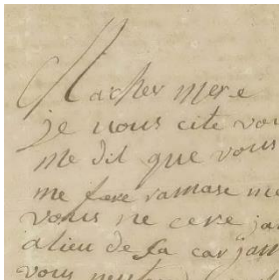 Macher mere
je vous cite vou
me dit que vous
me fere ramase me
vous ne cere ja
alieu de sa car jam
vous